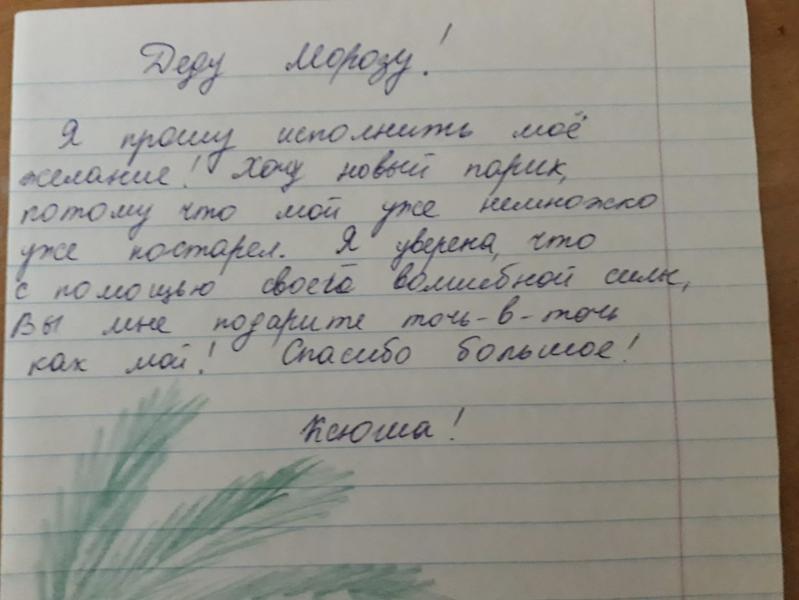 Деду Морозу!
Я прошу исполнить моё
желание! Хочу новый парик,
потому что мой уже немножко
уже постарел. Я уверена, что
с помощью своего волшебной силы,
Вы мне подарите точь-в-точь
как мой! Спасибо большое!
Ксюша!